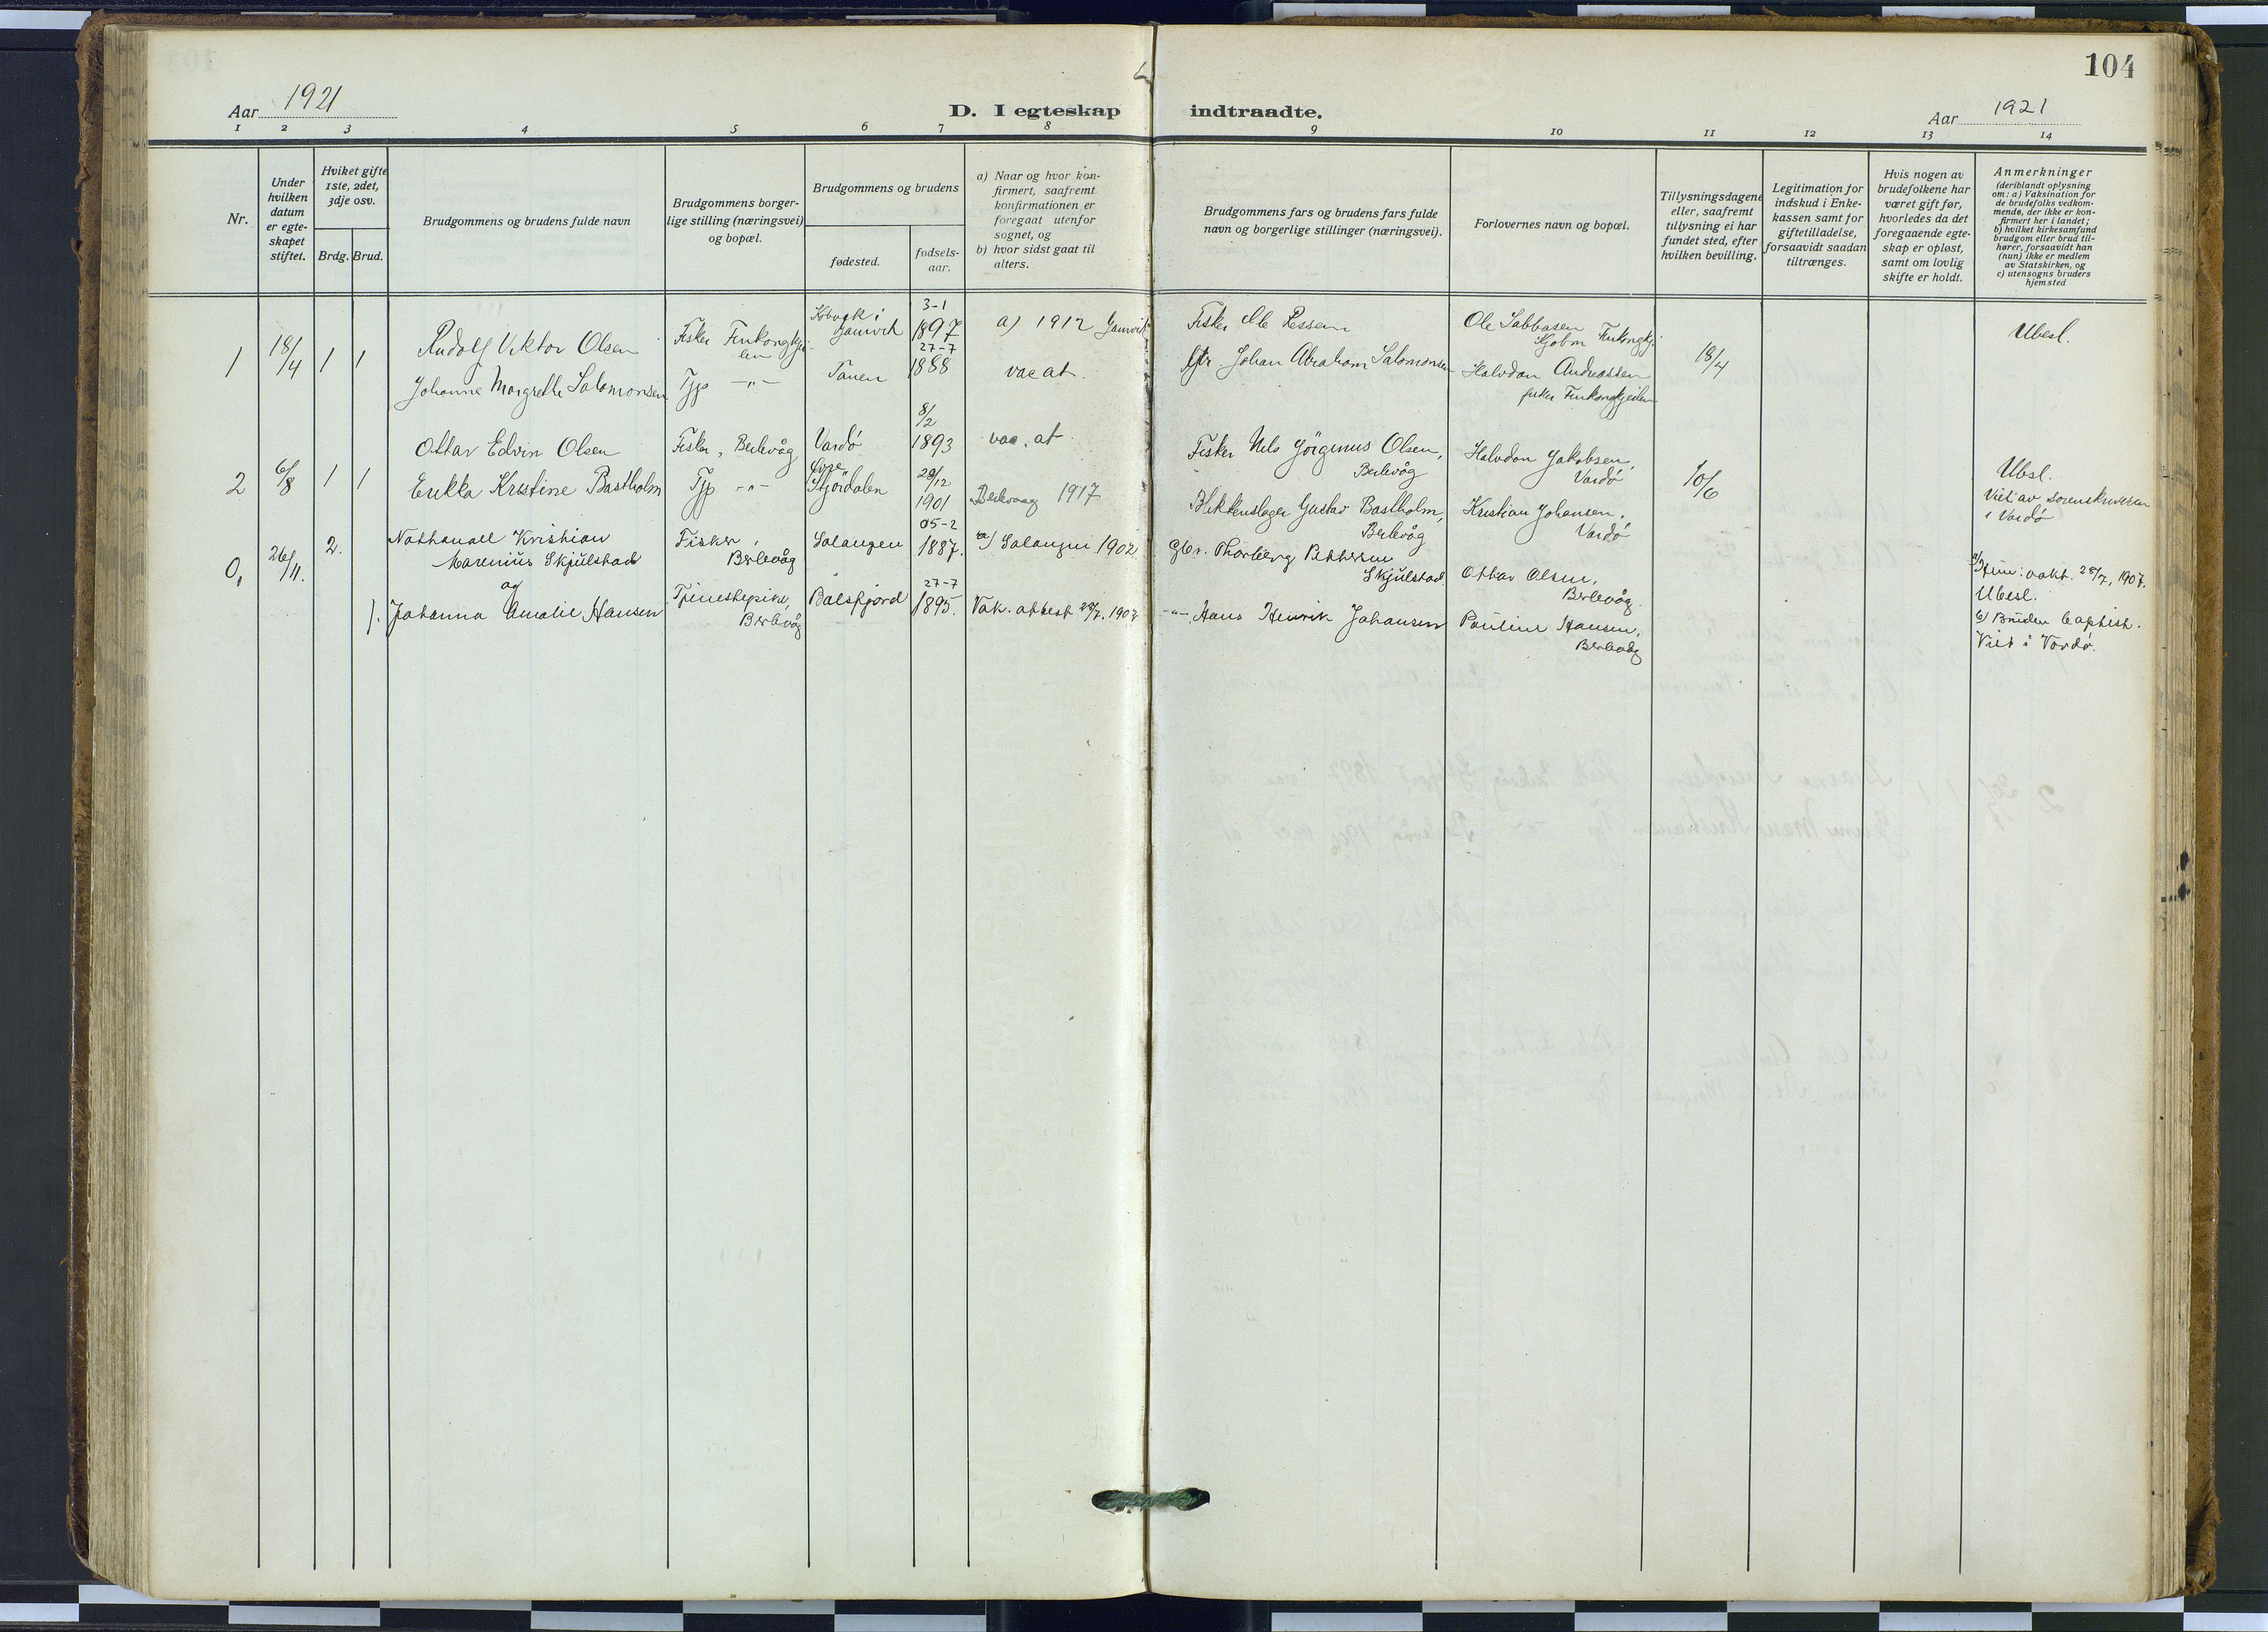 104
Aar 1921
D. I egteskap indtraadte.
Aar 1921
1 2 3 4 5 6 7 8 9 10 11 12 13 14
Nr.
Under hvilken datum er egteskapet stiftet.
Hviket gifte 1ste, 2det, 3dje osv.
Brdg. Brud.
Brudgommens og brudens fulde navn
Brudgommens borgerlige stilling (næringsvei) og bopæl.
Brudgommens og brudens
fødested.
fødselsaar.
a) Naar og hvor konfirmert, saafremt konfirmationen er foregaat utenfor sognet, og
b) hvor sidst gaat til alters.
Brudgommens fars og brudens fars fulde navn og borgerlige stillinger (næringsvei).
Forlovernes navn og bopæl.
Tillysningsdagene eller, saafremt tillysning ei har fundet sted, efter hvilken bevilling.
Legitimation for indskud i Enkekassen samt for giftetilladelse, forsaavidt saadan tiltrænges.
Hvis nogen av brudefolkene har været gift før, hvorledes da det foregaaende egteskap er opløst, samt om lovlig skifte er holdt.
Anmerkninger
(deriblandt oplysning om: a) Vaksination for de brudefolks vedkommende, der ikke er konfirmert her i landet;
b) hvilket kirkesamfund brudgom eller brud tilhører, forsaavidt han (hun) ikke er medlem av Statskirken, og
c) utensogns bruders hjemsted
1 18/4 1 1 Rudolf Viktor Olsen Fisker Finkongkjeilen Gamvik 3-1 1897 a) 1912 Gamvik Fisker Ole Ole Sabbasen Finkongkj. 18/4 Ubesl.
Johanne Margrethe Salomonsen Tjp -"- Tanen 27-7 1888 vac at. Johan Abraham Salomonsen Halvdan Andreassen
fisker Finkongkjeilen
2 6/8 1 1 Ottar Edvin Olsen Fisker, Berlevåg Vardö 8/2 1893 vac. at Fisker Nils Jörginus Olsen, Berlevåg Halvdan Jakobsen, Vardö 10/6 Ubsl.
Erikka Kristine Bastholm Tjp -"- Stjördalen 28/12 1901 Berlevaag 1917 Blikkenslager Gustav Bastholm, Berlevåg Kristian Johansen, Vardö Viet av sorenskriveren i Vardö
0, 26/11. 2. Nathanael Kristian Marenius Skjulstad Fisker, Berlevåg Salangen 05-2 1887. a) Salangen 1902. Gbr. Thorberg Pettersen Skjulstad. Ottar Olsen, Berlevåg. vakt. 28/7, 1907.
og
Ubesl.
1. Johanna Amalie Hansen Tjenestepike, Berlevåg Balsfjord 27-7 1895. Vak. attest 28/7. 1907 -"- Hans Henrik Johansen Pauline Hansen, Berlevåg b) Bruden baptist.
Viet i Vardø.